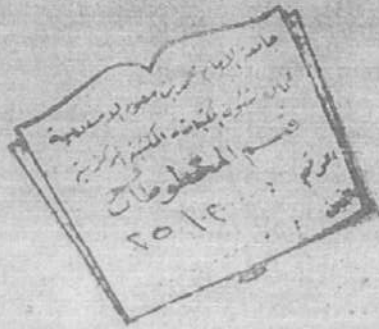 جامعة الإمام محمد بن سعود الإسلامية
شئون المكتبات - المكتبة المركزية
قسم المخطوطات
الرقم :